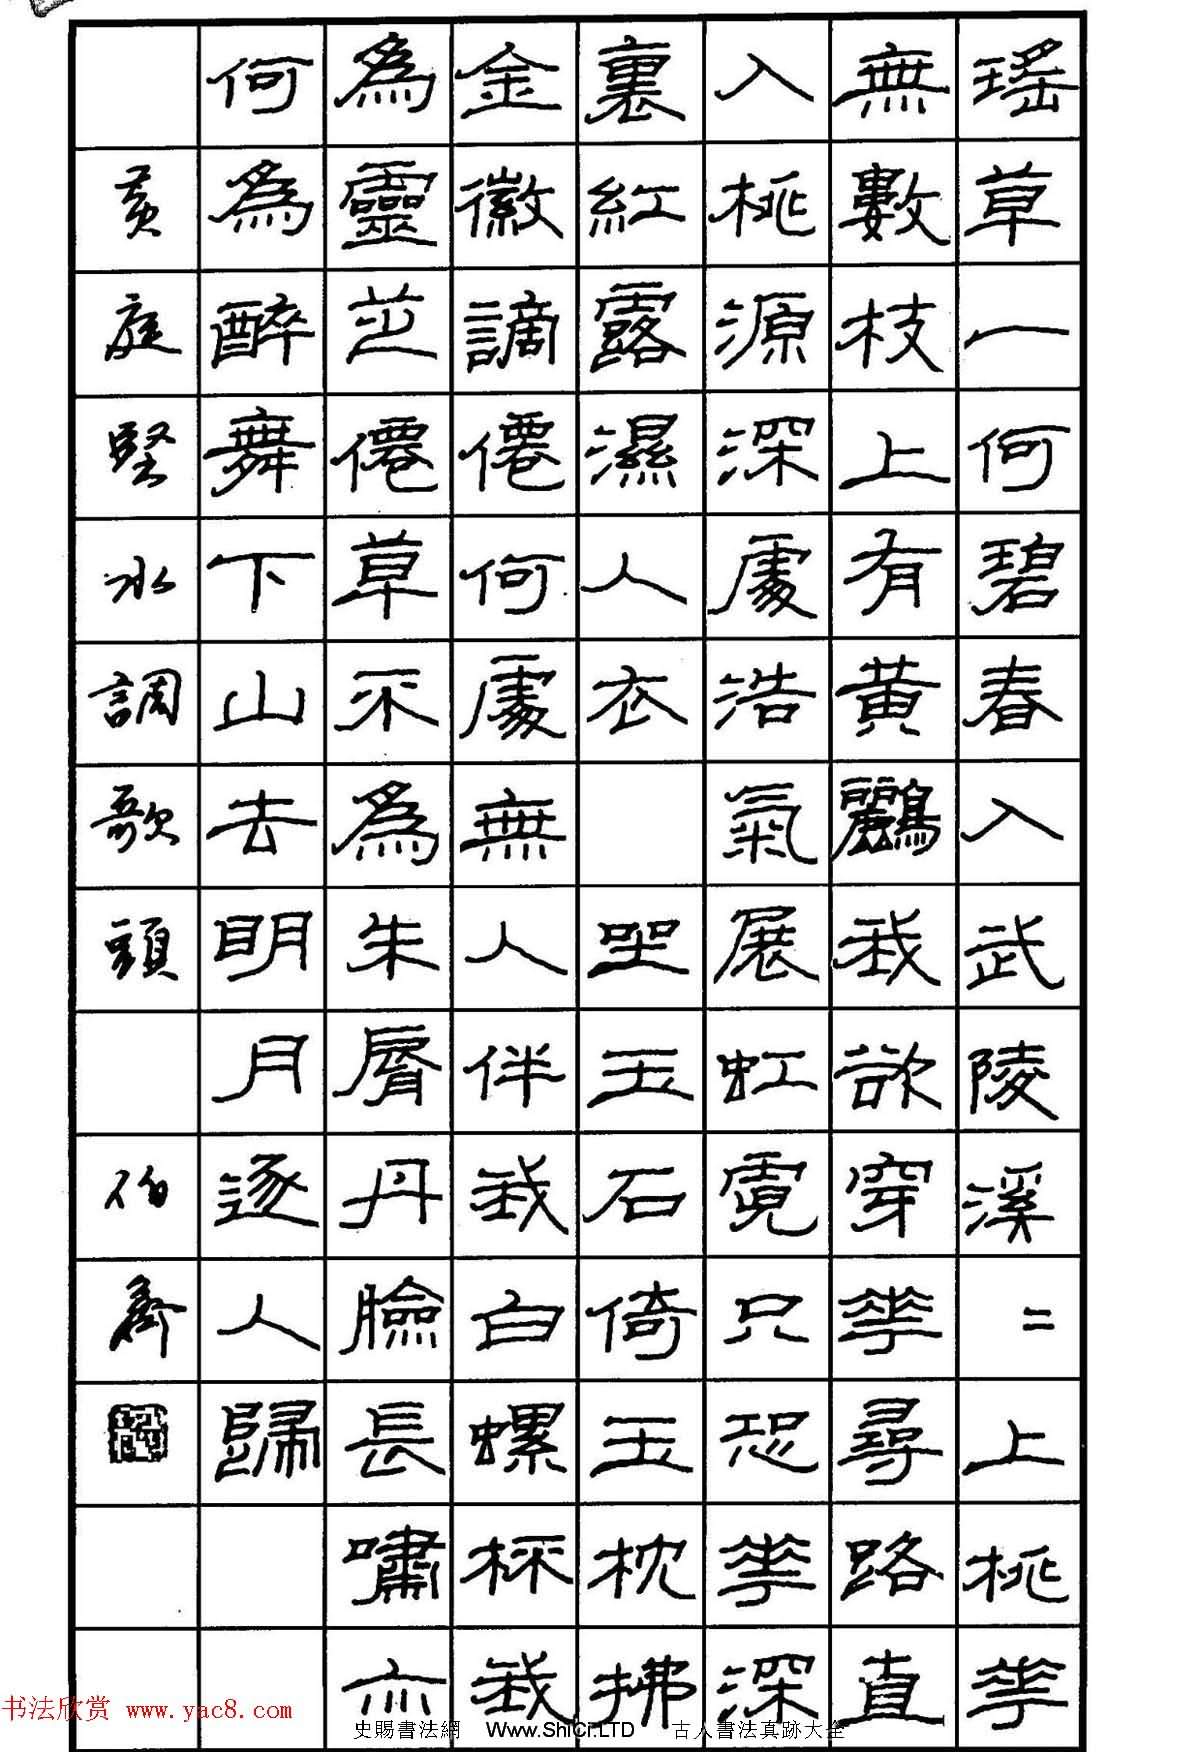 瑤草一何碧春入武陵溪〻上桃華
無數枝上有黃鸝我欲穿華尋路直
入桃源深處浩氣展虹霓只恐華深
裏紅露濕人衣 坐玉石倚玉枕拂
金徽謫僊何處無人伴我白螺杯我
為靈芝僊草不為朱脣丹臉長嘯亦
何為醉舞下山去明月逐人歸
黃庭堅水調歌頭 伯
书法欣赏 www.yac8.com
史賜書法網 Www.ShiCi.LTD 古人書法真跡大全